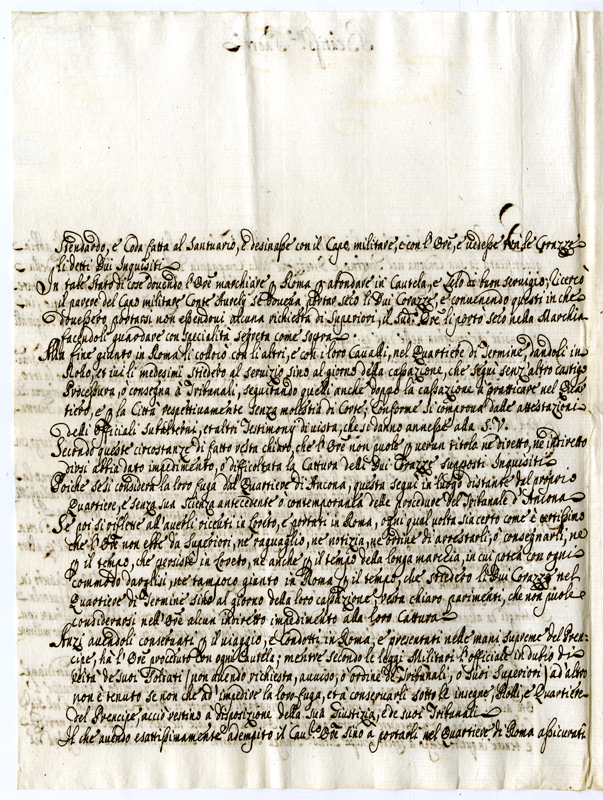 Stendardo, e Coda fatta al Santuario, e desinasse con il Capo militare, e con l'Ore, e vedesse le Corazze
li detti Dui Inquisiti
In tale stato di cose dovendo l'Ore marchiare p Roma p abondare in Cautela, e Zelo di buon servigio, ricercò
il parere del Capo militare Conte Aurelij se doveva portar seco li Dui Corazze, e convenendo questi in che
dovessero portarsi non essendovi alcuna richiesta di Superiori, il Sud. Ore li portò seco nella Marchia
facendoli guardare con specialità segreta come sopra
Alla fine giunto in Roma li collocò con li altri, e con i loro Cavalli, nel Quartiere di Termine, dandoli in
Rollo, et ivi li medesimi stiedero al servizio sino al giorno della cassazione, che seguì senz'altro castigo
Procesura, o consegna a Tribunali, seguitando quelli anche doppo la cassazione a pratticare nel Quar
tiero, e p la Città respettivamente senza molestia di Corte, conforme si comprova dalle attestationi
delli Officiali Subalterni, et altri Testimonij di vista, che si danno annesse alla S.V.
Secondo queste circostanze di fatto resta chiaro, che l'Ore non puole p verun titolo ne diretto, ne indiretto
dirsi abbia dato impedimento, o difficoltata la Cattura delli Dui Corazze supposti Inquisiti
Poiche se si considera la loro fuga dal Quartiere di Ancona, questa seguì in luogo distante dal proprio
Quartiere, e senza sua scienza antecedente o contemporanea delle procedure del Tribunale d'Ancona
Se poi si riflette all'averli ricevuti in Loreto, e portati in Roma, ogni qual volta sia certo come è certissimo
che l'Ore non ebbe da Superiori, ne raguaglio, ne notizia, ne ordine di arrestarli, o consegnarli, ne
p il tempo, che persiste in Loreto, ne anche p il tempo della longa marchia, in cui poteva con ogni
commodo darglisi, ne tampoco giunto in Roma p il tempo, che stiedero li Dui Corazze nel
Quartiere di Termine sino al giorno della loro cassazione, resta chiaro parimenti, che non puole
considerarsi nell'Ore alcun indiretto impedimento alla loro Cattura
Anzi avendoli conservati p il viaggio, e condotti in Roma, e presentati nelle mani supreme del Pren-
cipe, ha l'Ore proceduto con ogni Cautela; mentre secondo le leggi Militari l'officiale in dubio di
reità de suoi Soldati (non avendo richiesta, avviso, o ordine de Tribunali, o suoi Superiori) ad altro
non è tenuto se non che ad impedire la loro fuga, et a conservarli sotto le insegne, Rolli, e Quartiere
del Prencipe, acciò restino a disposizione della sua Giustizia, e de suoi Tribunali
Il che avendo esattissimamente adempito il Cav. Ore sino a portarli nel Quartiere di Roma assicurati